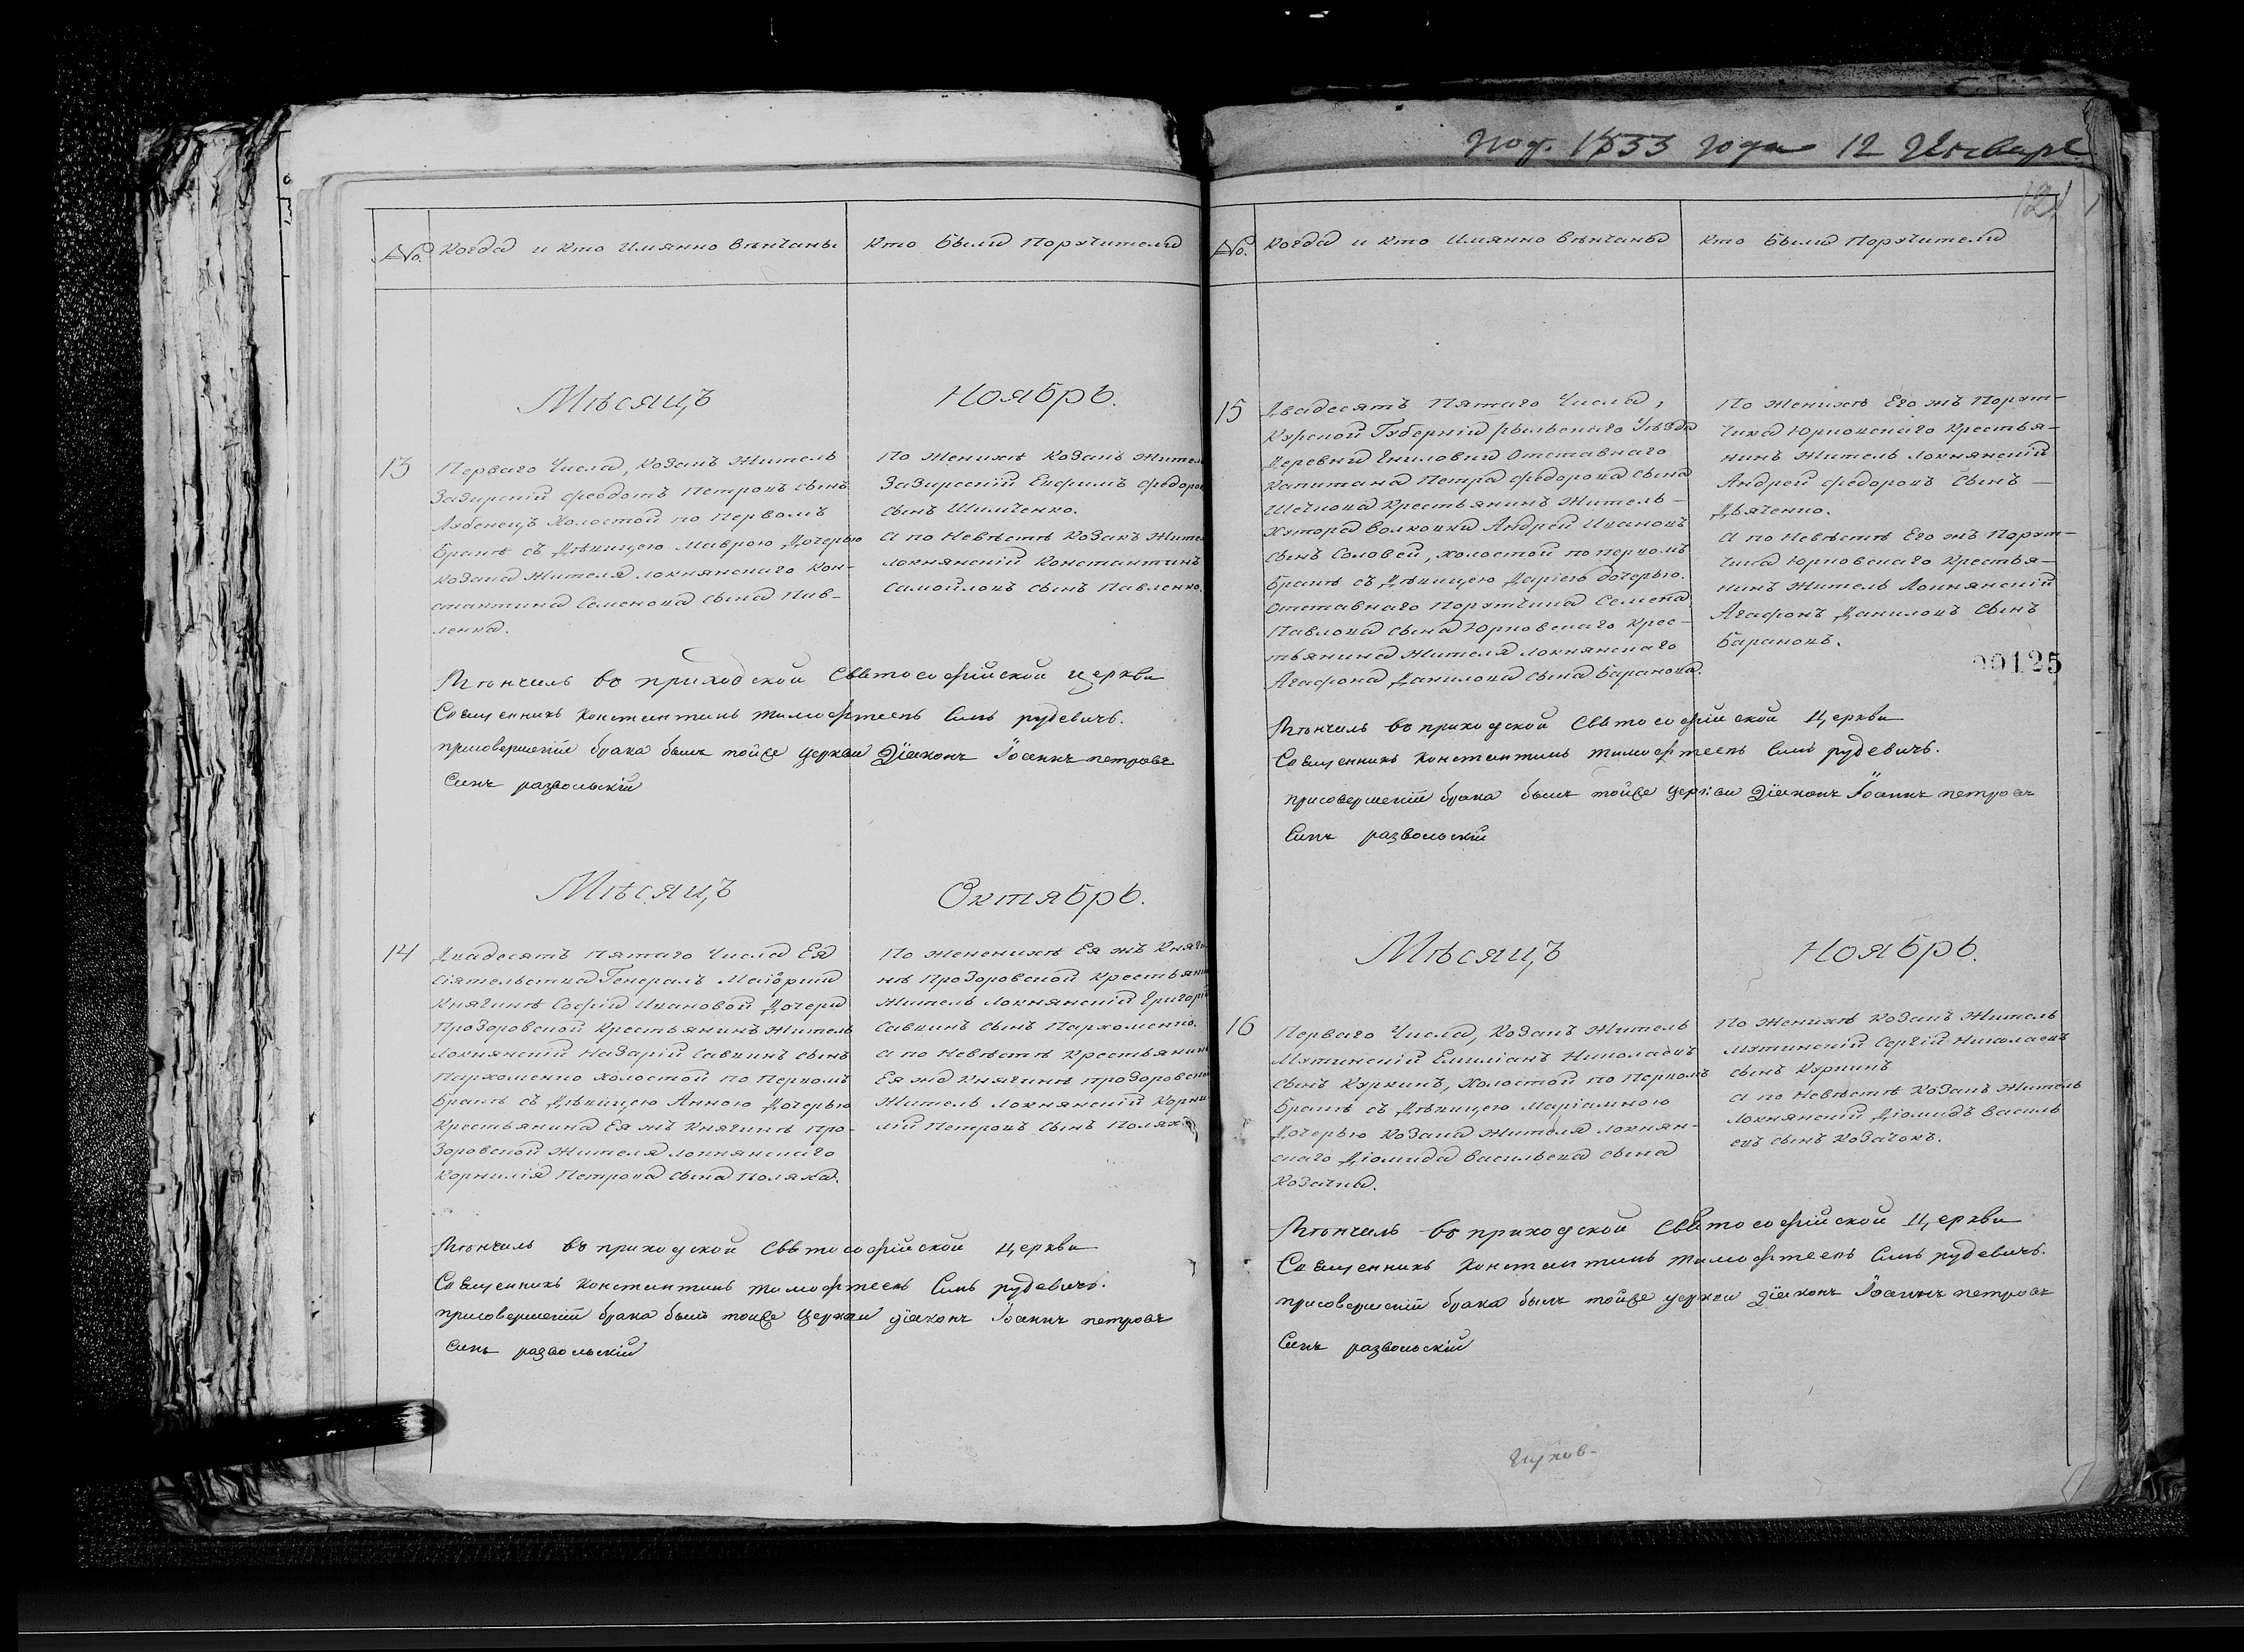 Под. 1833 года 12 Января
121
№. Когда и Кто Имянно вѣнчаны
Кто Были Поручители
Мѣсяцъ
Ноябрь.
13
Перваго Числа, Козакъ Житель
Зазирскій Феодотъ Петровъ сынъ
Лубенецъ Холостой по Первомъ
Бракѣ съ Дѣвицею Маврою Дочерью
Козака Жителя Локнянскаго Кон-
стантина Семенова сына Пав-
ленка.
По Женихѣ Козакъ Житель
Зазирскій Евфимъ Федоров
сынъ Шимченко.
А по Невѣстѣ Козакъ Жите
локнянскій Константинъ
Самойловъ сынъ Павленко.
Вѣнчалъ во приходской Свѣтософійской церкви
Священникъ Константинъ Тимофѣевъ Синъ рудевичъ.
присовершеніи брака былъ тойже Церкви Діаконъ Іоаннъ петровъ
Синъ развольскій
Мѣсяцъ
Октябрь.
14
Двадесятъ Пятаго Числа Ея
Сіятельства Генералъ Маіорши
Княгинѣ Софіи Ивановой Дочери
Прозоровской Крестьянинъ Житель
Локнянскій Назарій Саввинъ сынъ
Пархоменко холостой по Первомъ
Бракѣ съ Дѣвицею Анною Дочерью
Крестьянина Ея жъ Княгинѣ Про-
зоровской Жителя локнянскаго
Корнилія Петрова сына Поляка.
По Жененихѣ Ея жъ Княги-
нѣ Прозоровской Крестьяни
Житель Локнянскій Григорі
Саввинъ сынъ Пархоменко.
А по Невѣстѣ Крестьянин
Ея жъ Княгинѣ прозоровско
Житель Локнянскій Корни
лій Петровъ Сынъ Поляк
Вѣнчалъ во приходской Свѣтософійской церкви
Священникъ Константинъ тимофѣевъ Синъ рудевичъ.
присовершеніи брака былъ тойже Церкви діаконъ Іоаннъ петровъ
Синъ развольскій
№. Когда и Кто Имянно вѣнчаны
Кто Были Поручители
15
Двадесятъ Пятаго Числа,
Курской Губерніи Рыльскаго Уѣзда
Деревни Гниловки Отставнаго
Капитана Петра Федорова сына
Шечкова Крестьянинъ Житель
Хутора Волковки Андрей Ивановъ
сынъ Соловей, холостой по первомъ
Бракѣ съ Дѣвицею Даріею дочерью.
Отставнаго Порутчика Семена
Павлова сына Юрковскаго Крес-
тьянина Жителя Локнянскаго
Агафона Данилова сына Баранова.
По Женихѣ Его жъ Порут-
чика Юрковскаго Крестья-
нинъ Житель Локнянскій
Андрей Федоровъ Сынъ
Дяченко.
А по Невѣстѣ Его жъ Порут-
чика Юрковскаго Крестья-
нинъ Житель Локнянскій
Агафонъ Даниловъ Сынъ
Барановъ.
00125
Вѣнчалъ во приходской Свѣтософійской Церкви
Священникъ Константинъ тимофѣевъ Синъ рудевичъ.
присовершеніи брака былъ тойже Церкви Діаконъ Іоаннъ петровъ
Синъ развольскій
Мѣсяцъ
Ноябрь.
16
Перваго Числа, Козакъ Житель
Мутинскій Емиліанъ Николаевъ
сынъ Куркинъ, Холостой по Первомъ
Бракѣ съ Дѣвицею Маріамною
Дочерью Козака Жителя Локнян-
скаго Діомида Васильева сына
Козачка.
По Женихѣ Козакъ Житель
Мутинскій Сергій Николаевъ
сынъ Куркинъ
А по Невѣстѣ Козакъ Житель
Локнянскій Діомидъ Василь
евъ сынъ Козачокъ.
Вѣнчалъ во приходской Свѣтософійской Церкви
Священникъ Константинъ тимофѣевъ Синъ рудевичъ.
присовершеніи брака былъ тойже церкви діаконъ Іоаннъ петровъ
Синъ развольскій